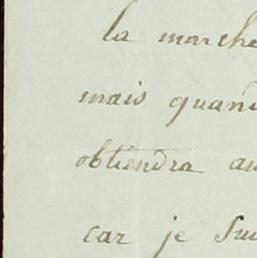 la marche
mais quand
obtiendra au
car je sui